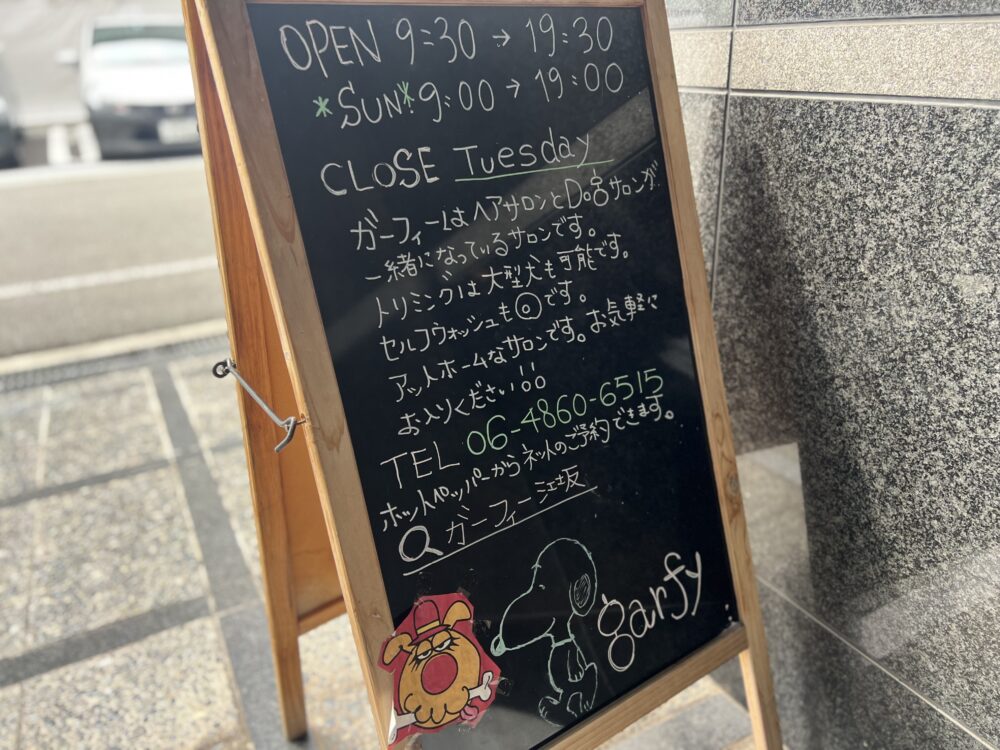 OPEN 9:30 → 19:30
*SUN* 9:00 → 19:00
CLOSE Tuesday
ガーフィーはヘアサロンとDogサロンが
一緒になっているサロンです。
トリミングは大型犬も可能です。
セルフウォッシュも◎です。
アットホームなサロンです。お気軽に
お入りください!!
TEL 06-4860-6515
ホットペッパーからネットのご予約できます。
ガーフィー江坂
garfy